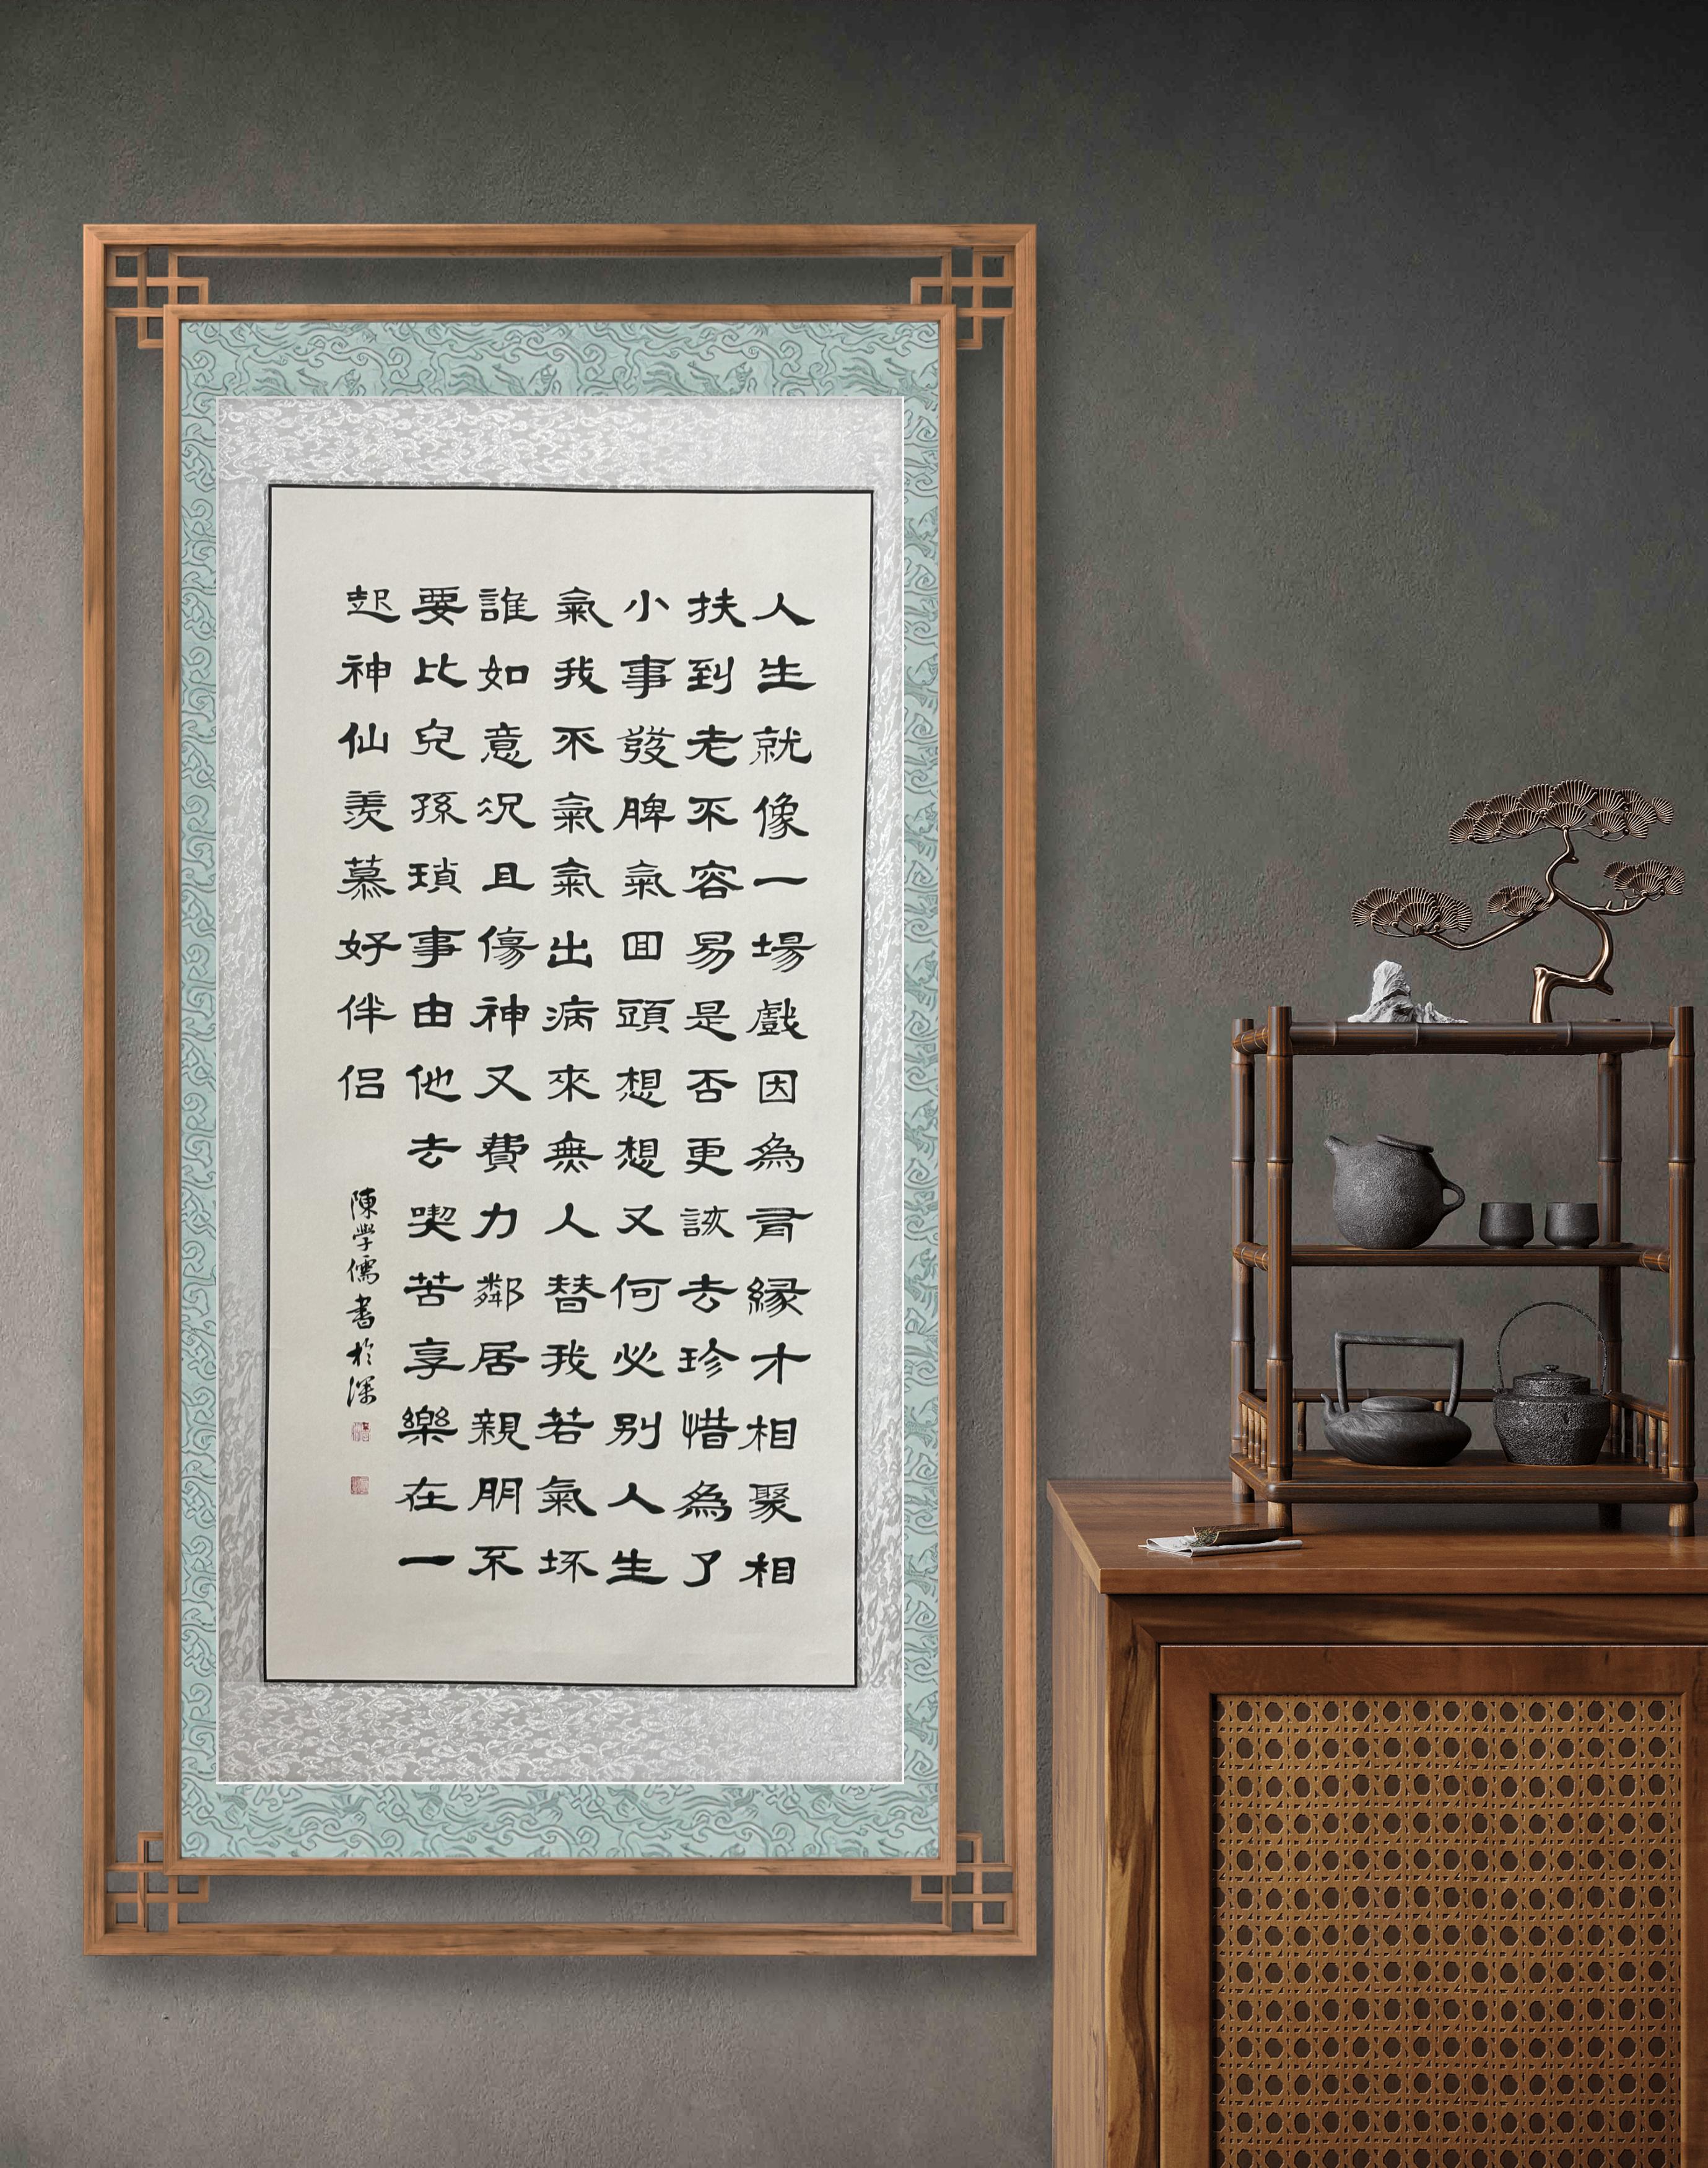 人生就像一場戲因為有緣才相聚相
扶到老不容易是否更該去珍惜為了
小事發脾氣回頭想想又何必別人生
氣我不氣氣出病來無人替我若氣坏
誰如意況且傷神又費力鄰居親朋不
要比兒孫瑣事由他去喫苦享樂在一
起神仙羨慕好伴侶
陳學儒書於深